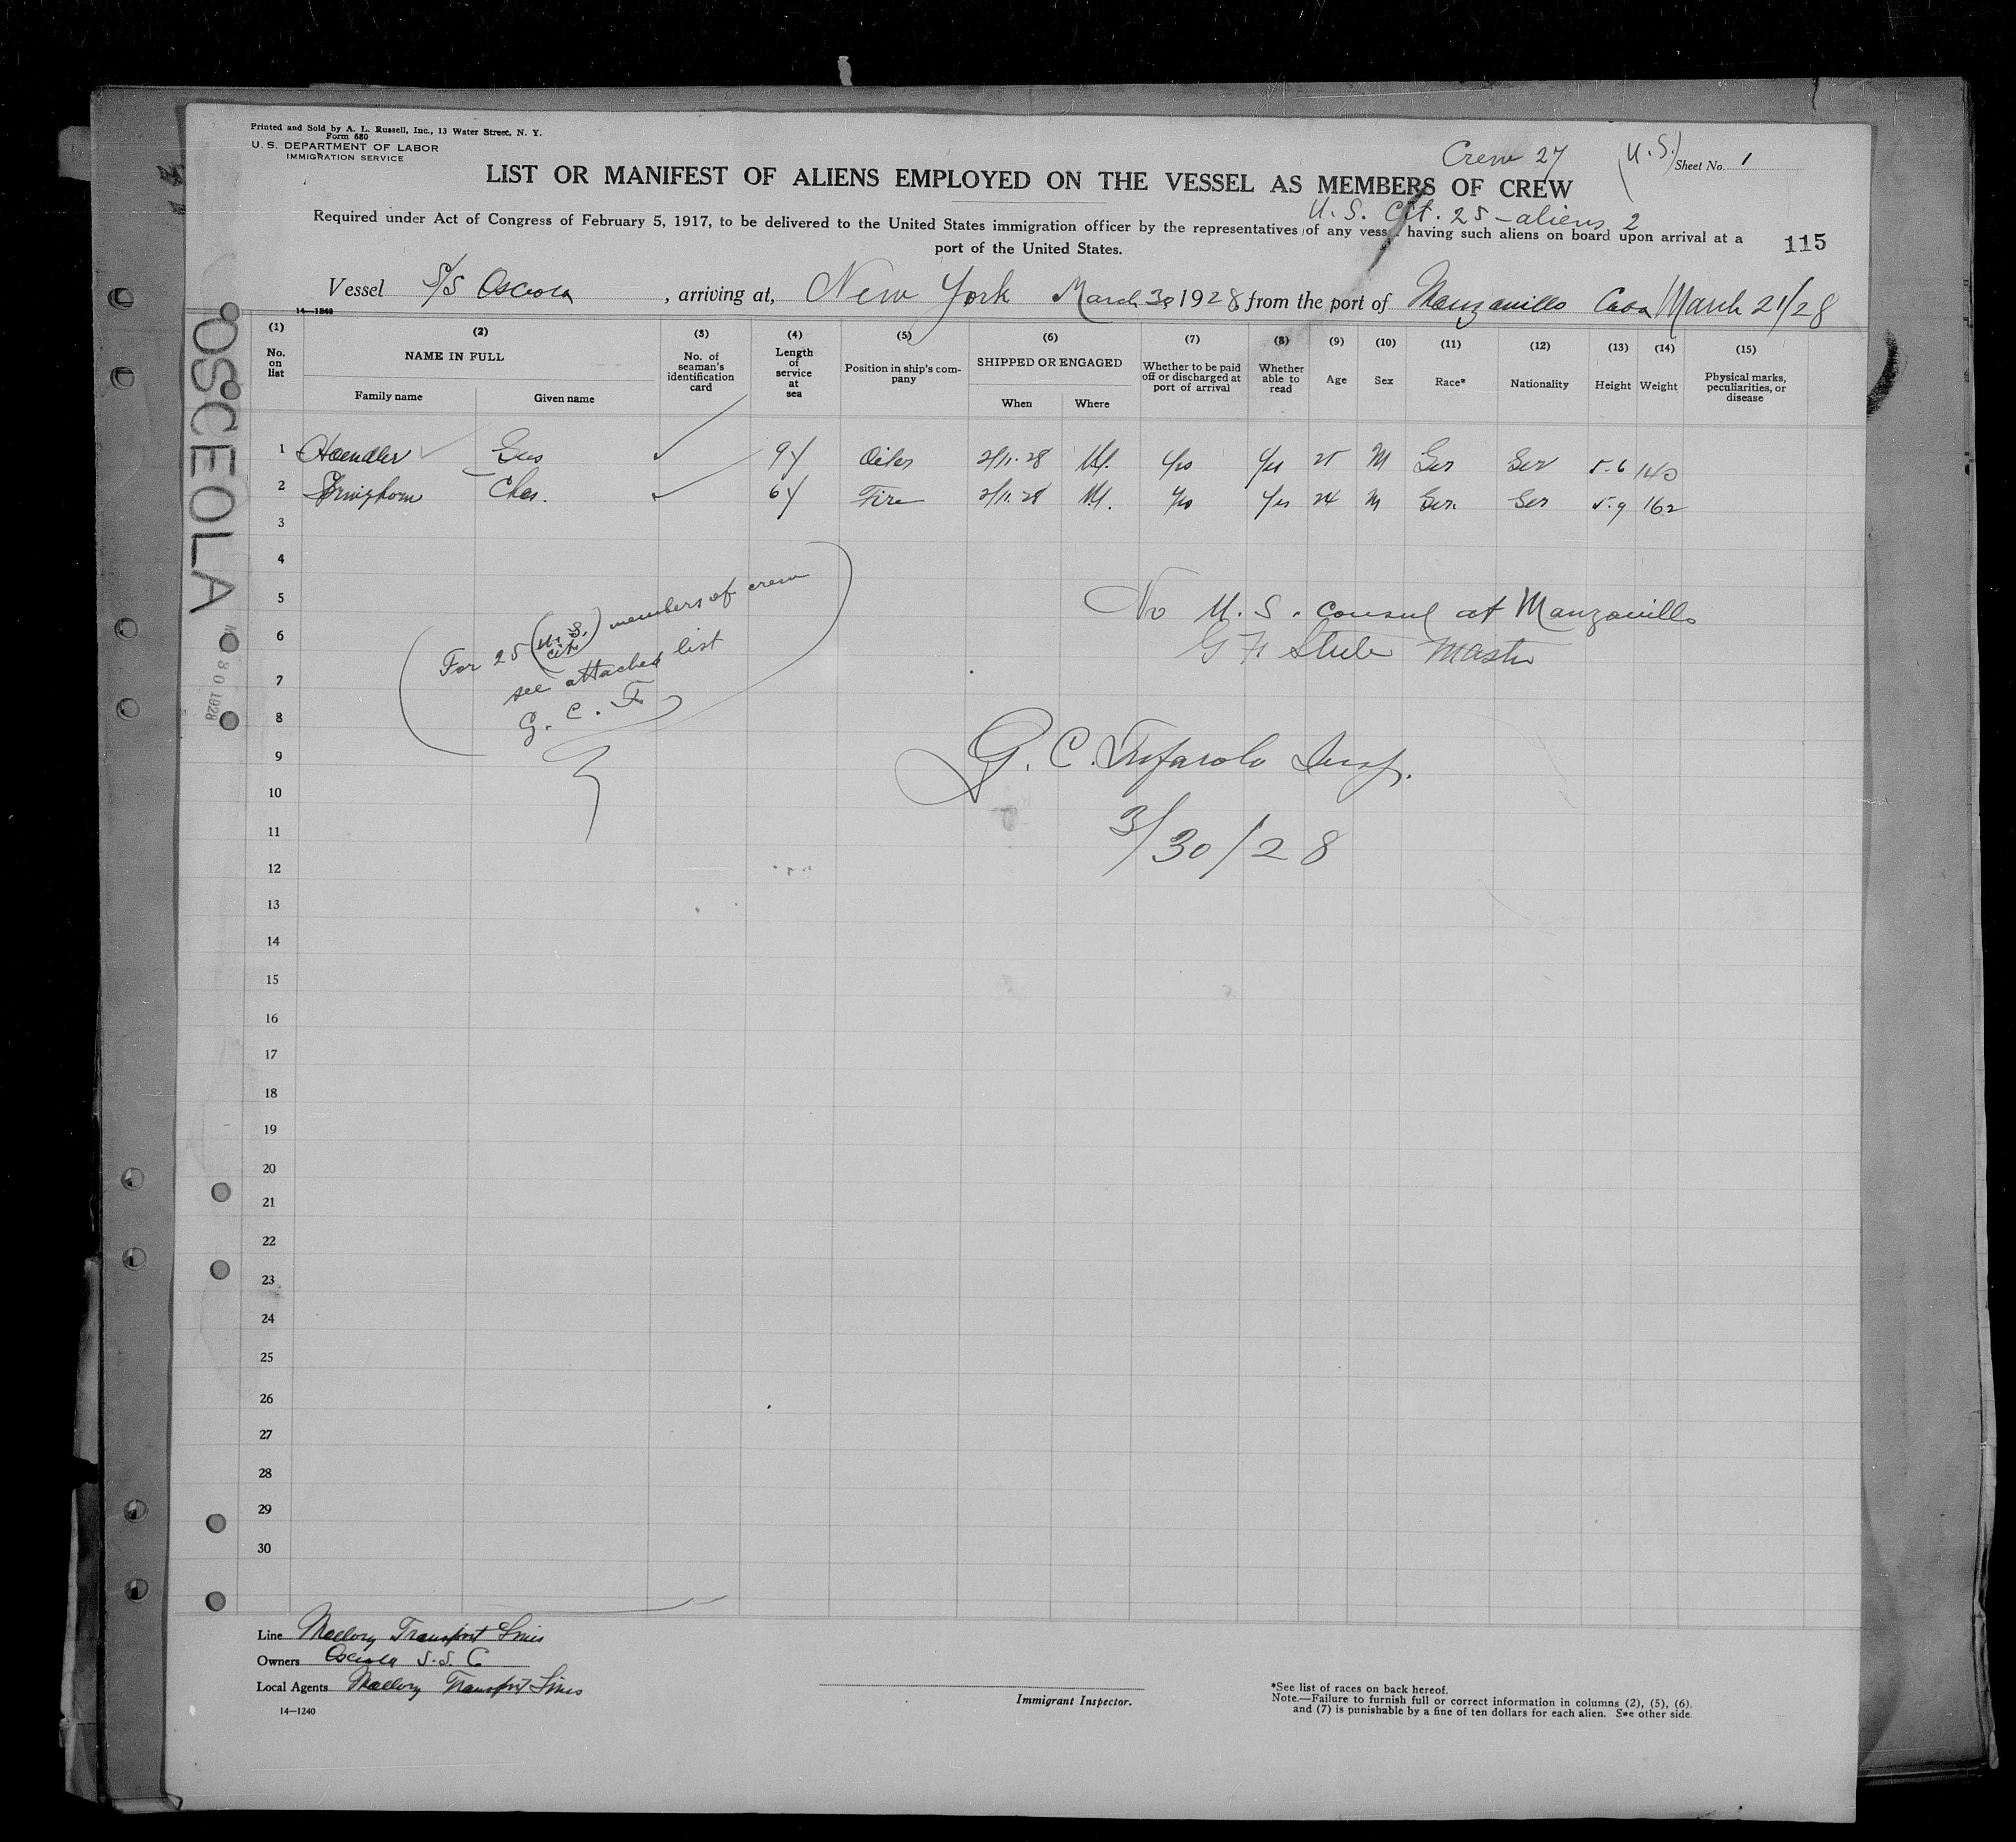 Printed and Sold by A. L. Russell, Inc., 13 Water Street, N. Y.
Form 680
U. S. DEPARTMENT OF LABOR
IMMIGRATION SERVICE
Crew 27 (U.S.)
Sheet No. 1
LIST OR MANIFEST OF ALIENS EMPLOYED ON THE VESSEL AS MEMBERS OF CREW
U. S. Cit. 25 - aliens 2
Required under Act of Congress of February 5, 1917, to be delivered to the United States immigration officer by the representatives of any vessel having such aliens on board upon arrival at a
port of the United States.
115
Vessel S/S Osceola, arriving at, New York March 30 1928, from the port of Manzanillo Cuba March 21/28
14—1240
(1) No. on list
(2) NAME IN FULL
Family name Given name
(3) No. of seaman's identification card
(4) Length of service at sea
(5) Position in ship's company
(6) SHIPPED OR ENGAGED
When Where
(7) Whether to be paid off or discharged at port of arrival
(8) Whether able to read
(9) Age
(10) Sex
(11) Race*
(12) Nationality
(13) Height
(14) Weight
(15) Physical marks, peculiarities, or disease
1 Haendler Gus 9y Oiler 2/11.28 N.Y. Yes Yes 25 M Ger Ger 5-6 140
2 Chas. 6y Fire 2/11.28 N.Y. Yes Yes 24 M Ger. Ger 5-9 162
3
4
5
6
7
8
9
10
11
12
13
14
15
16
17
18
19
20
21
22
23
24
25
26
27
28
29
30
For 25 (U.S. cit.) members of crew
see attached list
G. C. F.
No U. S. Consul at Manzanillo
Master
G. C. Insp.
3/30/28
OSCEOLA
30 1928
Line Mallory Transport Lines
Owners Osceola S.S. C
Local Agents Mallory Transport Lines
14—1240
Immigrant Inspector.
*See list of races on back hereof.
Note.—Failure to furnish full or correct information in columns (2), (5), (6),
and (7) is punishable by a fine of ten dollars for each alien. See other side.